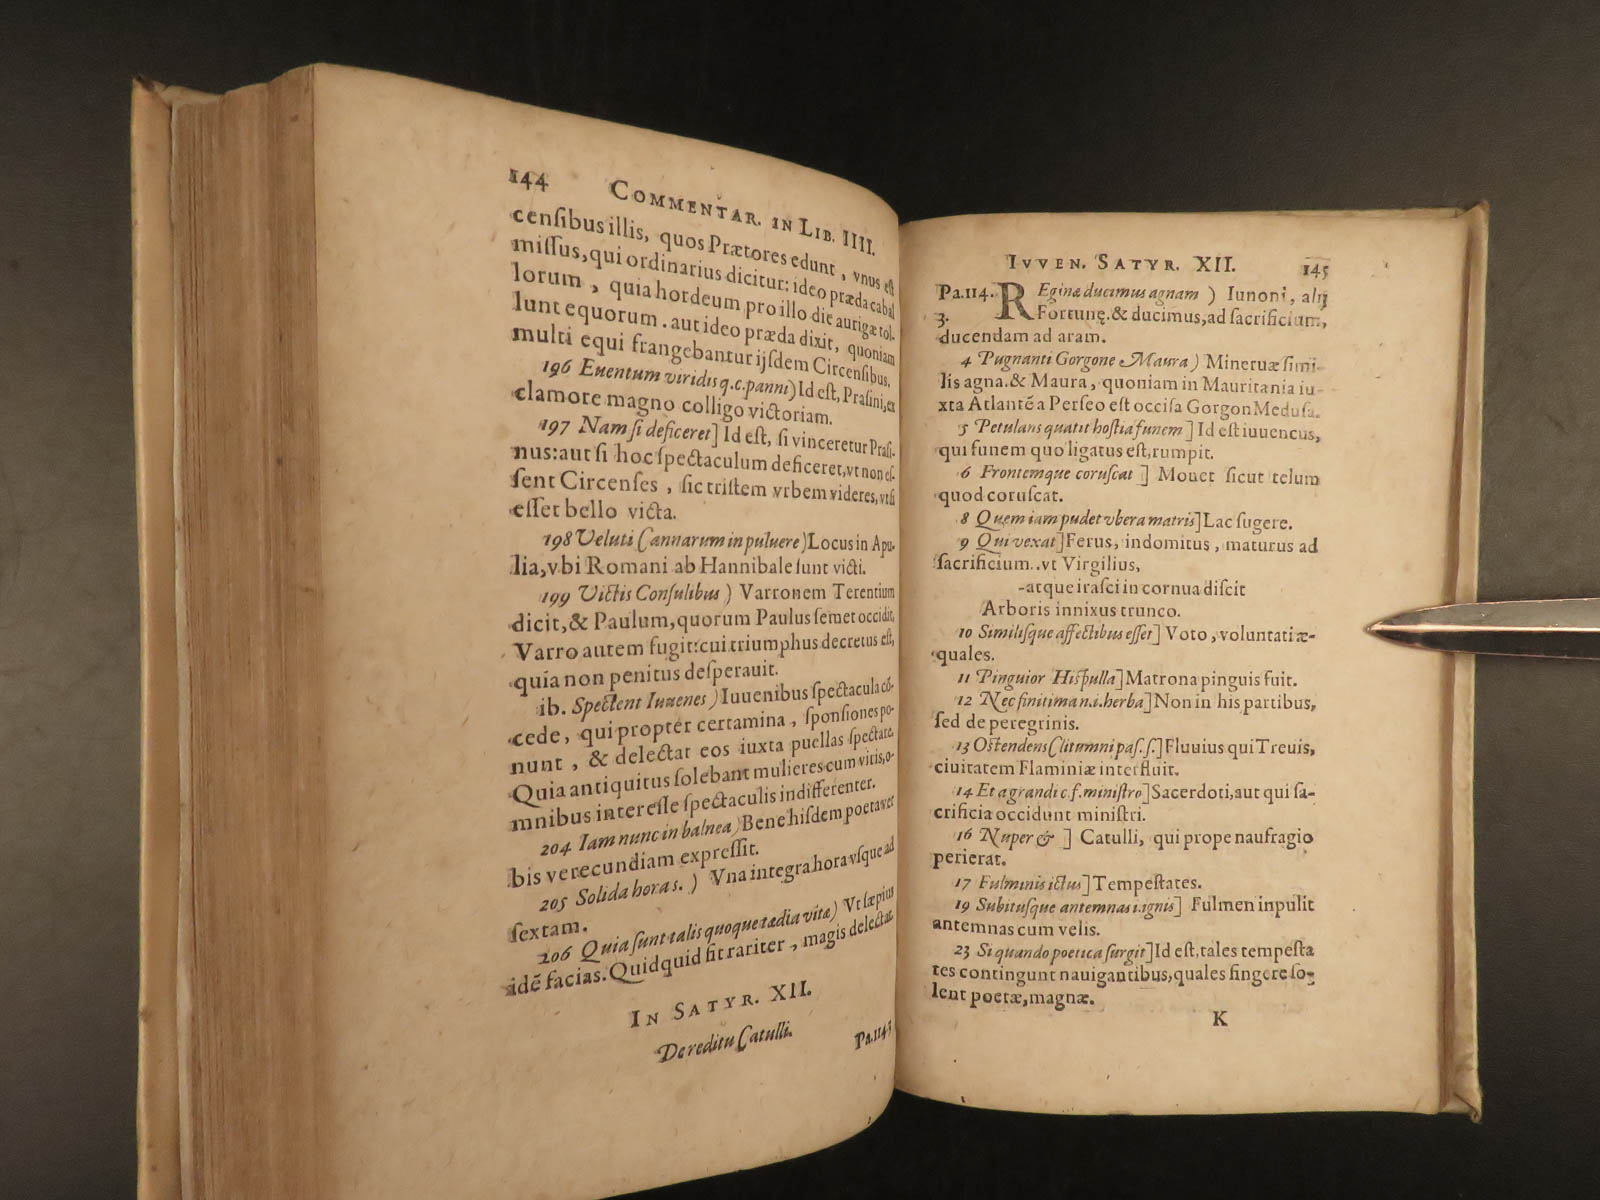 144 COMMENTAR. IN LIB. IIII.
cenſibus illis, quos Prætores edunt, vnus eſt
miſſus, qui ordinarius dicitur: ideo præda cabal
lorum, quia hordeum pro illo die aurigæ tol-
lunt equorum. aut ideo præda dixit, quoniam
multi equi frangebantur ijſdem Circenſibus.
196 Euentum viridis q.c.panni) Id eſt, Praſini, ex
clamore magno colligo victoriam.
197 Nam ſi deficeret] Id eſt, ſi vinceretur Praſi-
nus: aut ſi hoc ſpectaculum deficeret, vt non eſ-
ſent Circenſes, ſic triſtem vrbem videres, vt ſi
eſſet bello victa.
198 Veluti Cannarum in puluere) Locus in Apu-
lia, vbi Romani ab Hannibale ſunt victi.
199 Victis Conſulibus) Varronem Terentium
dicit, & Paulum, quorum Paulus ſemet occidit,
Varro autem fugit: cui triumphus decretus eſt,
quia non penitus deſperauit.
ib. Spectent Iuuenes) Iuuenibus ſpectacula cō-
cede, qui propter certamina, ſponſiones po-
nunt, & delectat eos iuxta puellas ſpectare.
Quia antiquitus ſolebant mulieres cum viris, o-
mnibus intereſſe ſpectaculis indifferenter.
204 Iam nunc in balnea) Bene hiſdem poeta ver
bis verecundiam expreſſit.
205 Solida horas.) Vna integra hora vſque ad
ſextam.
206 Quia ſunt talis quoque tædia vitæ) Vt ſæpius
idē facias. Quidquid fit rariter, magis delectat.
IN SATYR. XII.
De reditu Catulli.
Pa.114.
IVVEN. SATYR. XII. 145
Pa.114. REginæ ducimus agnam) Iunoni, alij
3. Fortunę. & ducimus, ad ſacrificium,
ducendam ad aram.
4 Pugnanti Gorgone Maura) Mineruæ ſimi-
lis agna. & Maura, quoniam in Mauritania iu-
xta Atlantē a Perſeo eſt occiſa Gorgon Meduſa.
5 Petulans quatit hoſtia funem] Id eſt iuuencus,
qui funem quo ligatus eſt, rumpit.
6 Frontemque coruſcat] Mouet ſicut telum
quod coruſcat.
8 Quem iam pudet vbera matris] Lac ſugere.
9 Qui vexat] Ferus, indomitus, maturus ad
ſacrificium. vt Virgilius,
-atque iraſci in cornua diſcit
Arboris innixus trunco.
10 Similiſque affectibus eſſet] Voto, voluntati æ-
quales.
11 Pinguior Hiſpulla] Matrona pinguis fuit.
12 Nec finitima n.i.herba] Non in his partibus,
ſed de peregrinis.
13 Oſtendens Clitumni paſ.ſ.] Fluuius qui Treuis,
ciuitatem Flaminiæ interfluit.
14 Et a grandi c.f.miniſtro] Sacerdoti, aut qui ſa-
crificia occidunt miniſtri.
16 Nuper &] Catulli, qui prope naufragio
perierat.
17 Fulminis ictus] Tempeſtates.
19 Subituſque antemnas i.ignis] Fulmen inpulit
antemnas cum velis.
23 Si quando poetica ſurgit] Id eſt, tales tempeſta
tes contingunt nauigantibus, quales fingere ſo-
lent poetæ, magnæ.
K